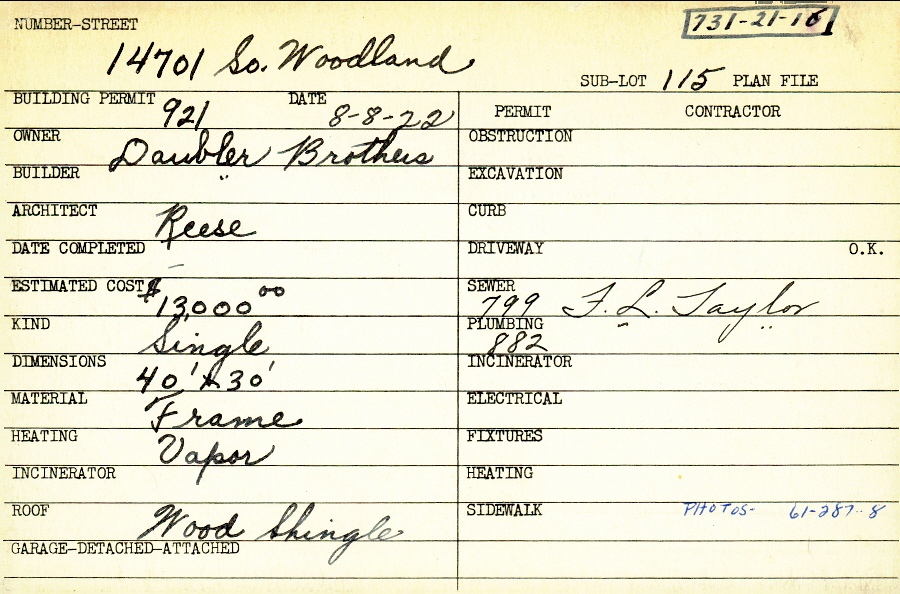 NUMBER-STREET
731-21-16
14701 So. Woodland
SUB-LOT 115 PLAN FILE
BUILDING PERMIT 921 DATE 8-8-22
PERMIT CONTRACTOR
OWNER Daubler Brothers
OBSTRUCTION
BUILDER "
EXCAVATION
ARCHITECT Reese
CURB
DATE COMPLETED
DRIVEWAY O.K.
ESTIMATED COST $13,000 00
SEWER 799 F. L. Taylor
KIND Single
PLUMBING 882 " "
DIMENSIONS 40' x 30'
INCINERATOR
MATERIAL Frame
ELECTRICAL
HEATING Vapor
FIXTURES
INCINERATOR
HEATING
ROOF Wood Shingle
SIDEWALK PHOTOS- 61-287-8
GARAGE-DETACHED-ATTACHED